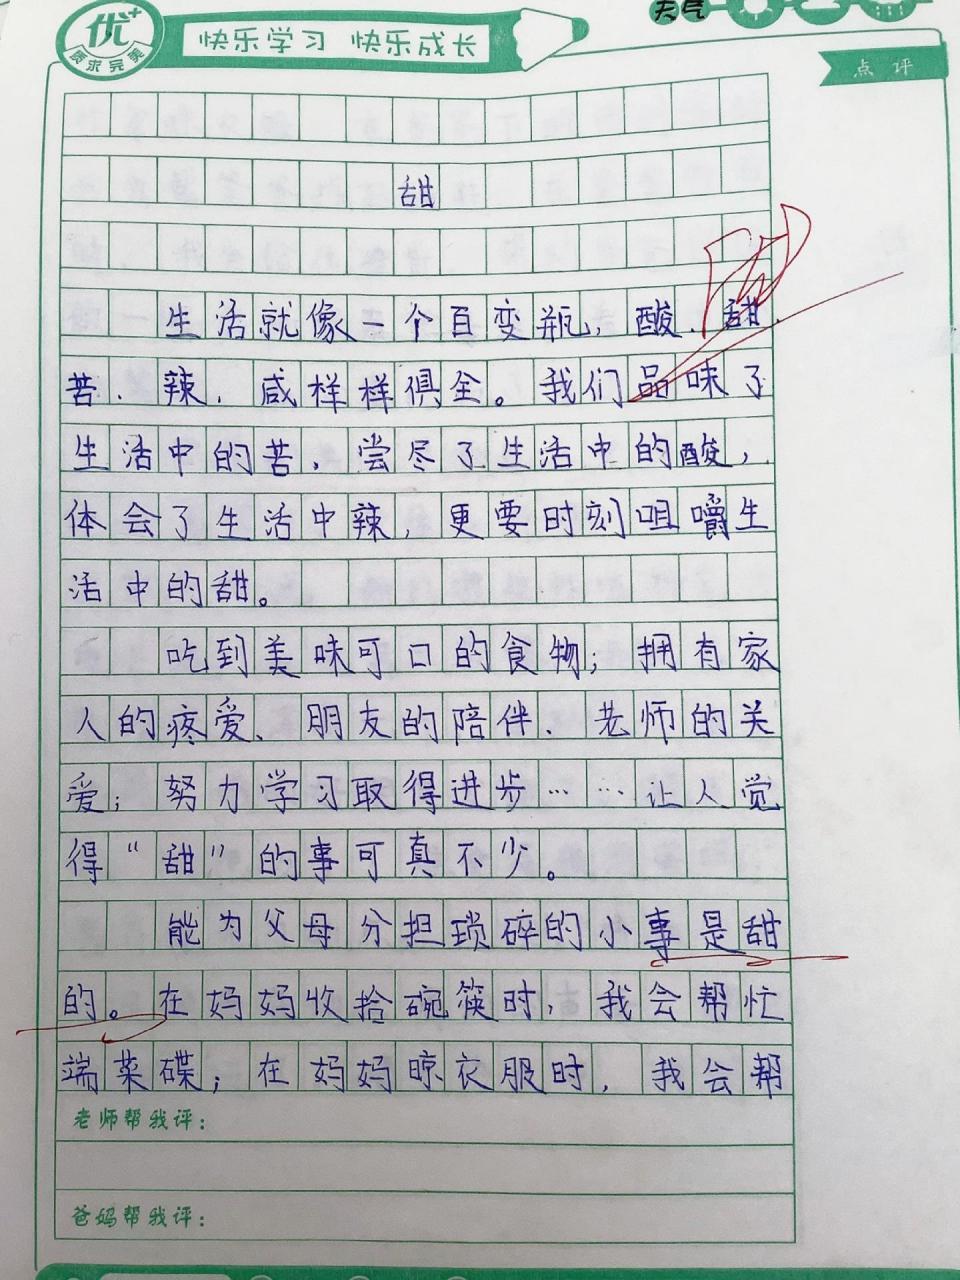 天气
优+
质求完美
快乐学习 快乐成长
点评
甜
生活就像一个百变瓶，酸、甜、
苦、辣、咸样样俱全。我们品味了
生活中的苦，尝尽了生活中的酸，
体会了生活中辣，更要时刻咀嚼生
活中的甜。
吃到美味可口的食物；拥有家
人的疼爱、朋友的陪伴、老师的关
爱；努力学习取得进步……让人觉
得“甜”的事可真不少。
能为父母分担琐碎的小事是甜
的。在妈妈收拾碗筷时，我会帮忙
端菜碟；在妈妈晾衣服时，我会帮
老师帮我评：
爸妈帮我评：